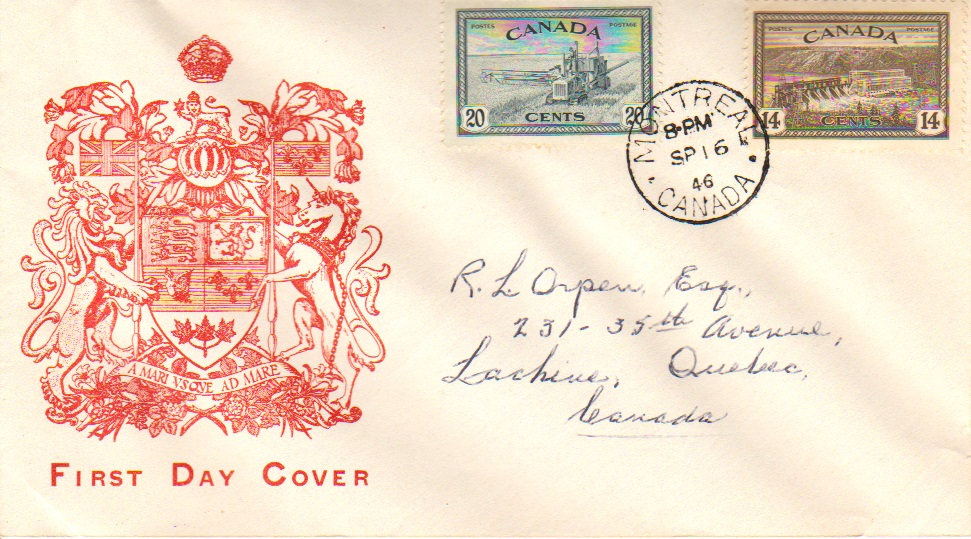 POSTES POSTAGE
CANADA
20 CENTS 20
POSTES POSTAGE
CANADA
14 CENTS 14
MONTREAL
8-PM
SP 16
46
CANADA
R. L. Orpen, Esq.,
231-35th Avenue,
Lachine, Quebec,
Canada
A MARI VSQVE AD MARE
FIRST DAY COVER